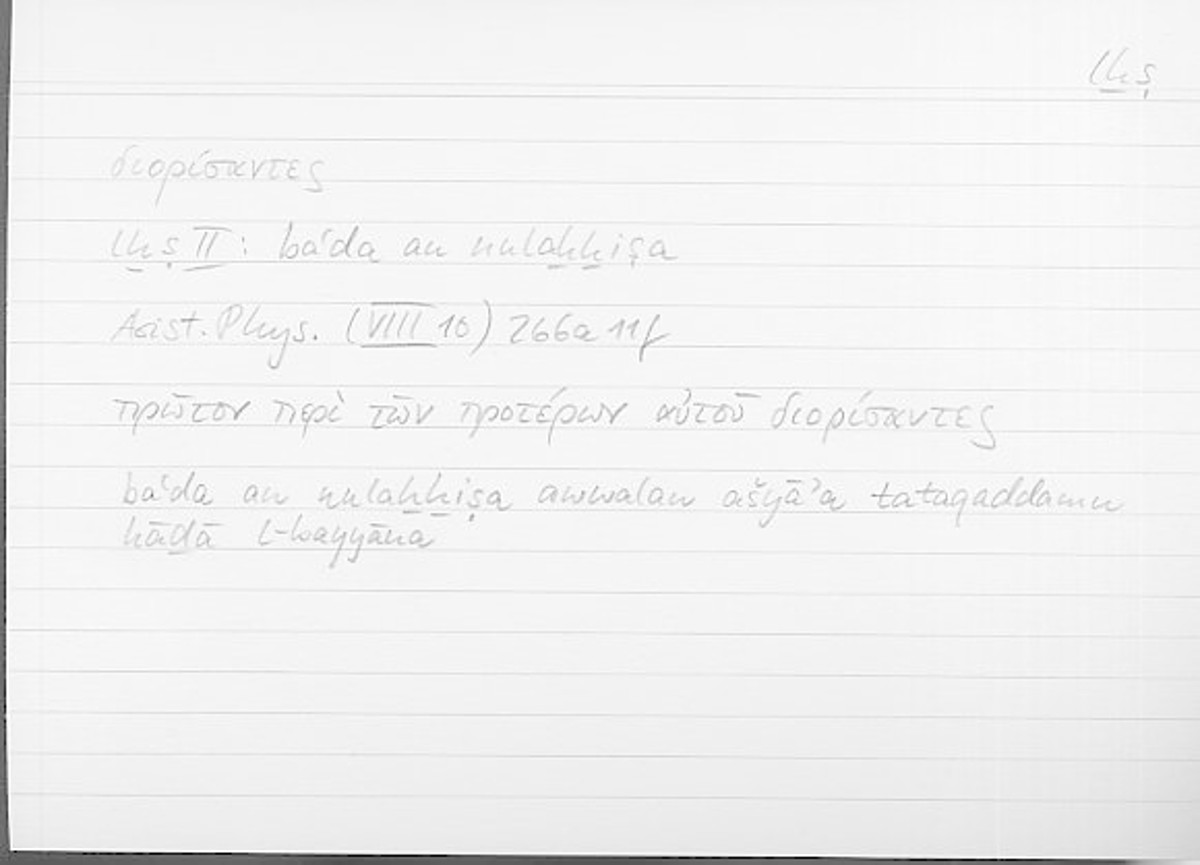 lḫṣ
διορίσαντες
lḫṣ II: baʿda an nulaḫḫiṣa
Arist. Phys. (VIII 10) 266a 11f
πρῶτον περὶ τῶν προτέρων αὐτοῦ διορίσαντες
baʿda an nulaḫḫiṣa awwalan ašyāʾa tataqaddamu
hāḏā l-bayyāna